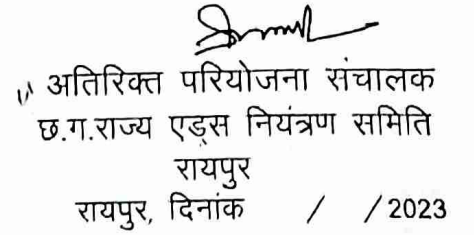 अतिरिक्त परियोजना संचालक
छ.ग.राज्य एड्स नियंत्रण समिति
रायपुर
रायपुर, दिनांक / / 2023